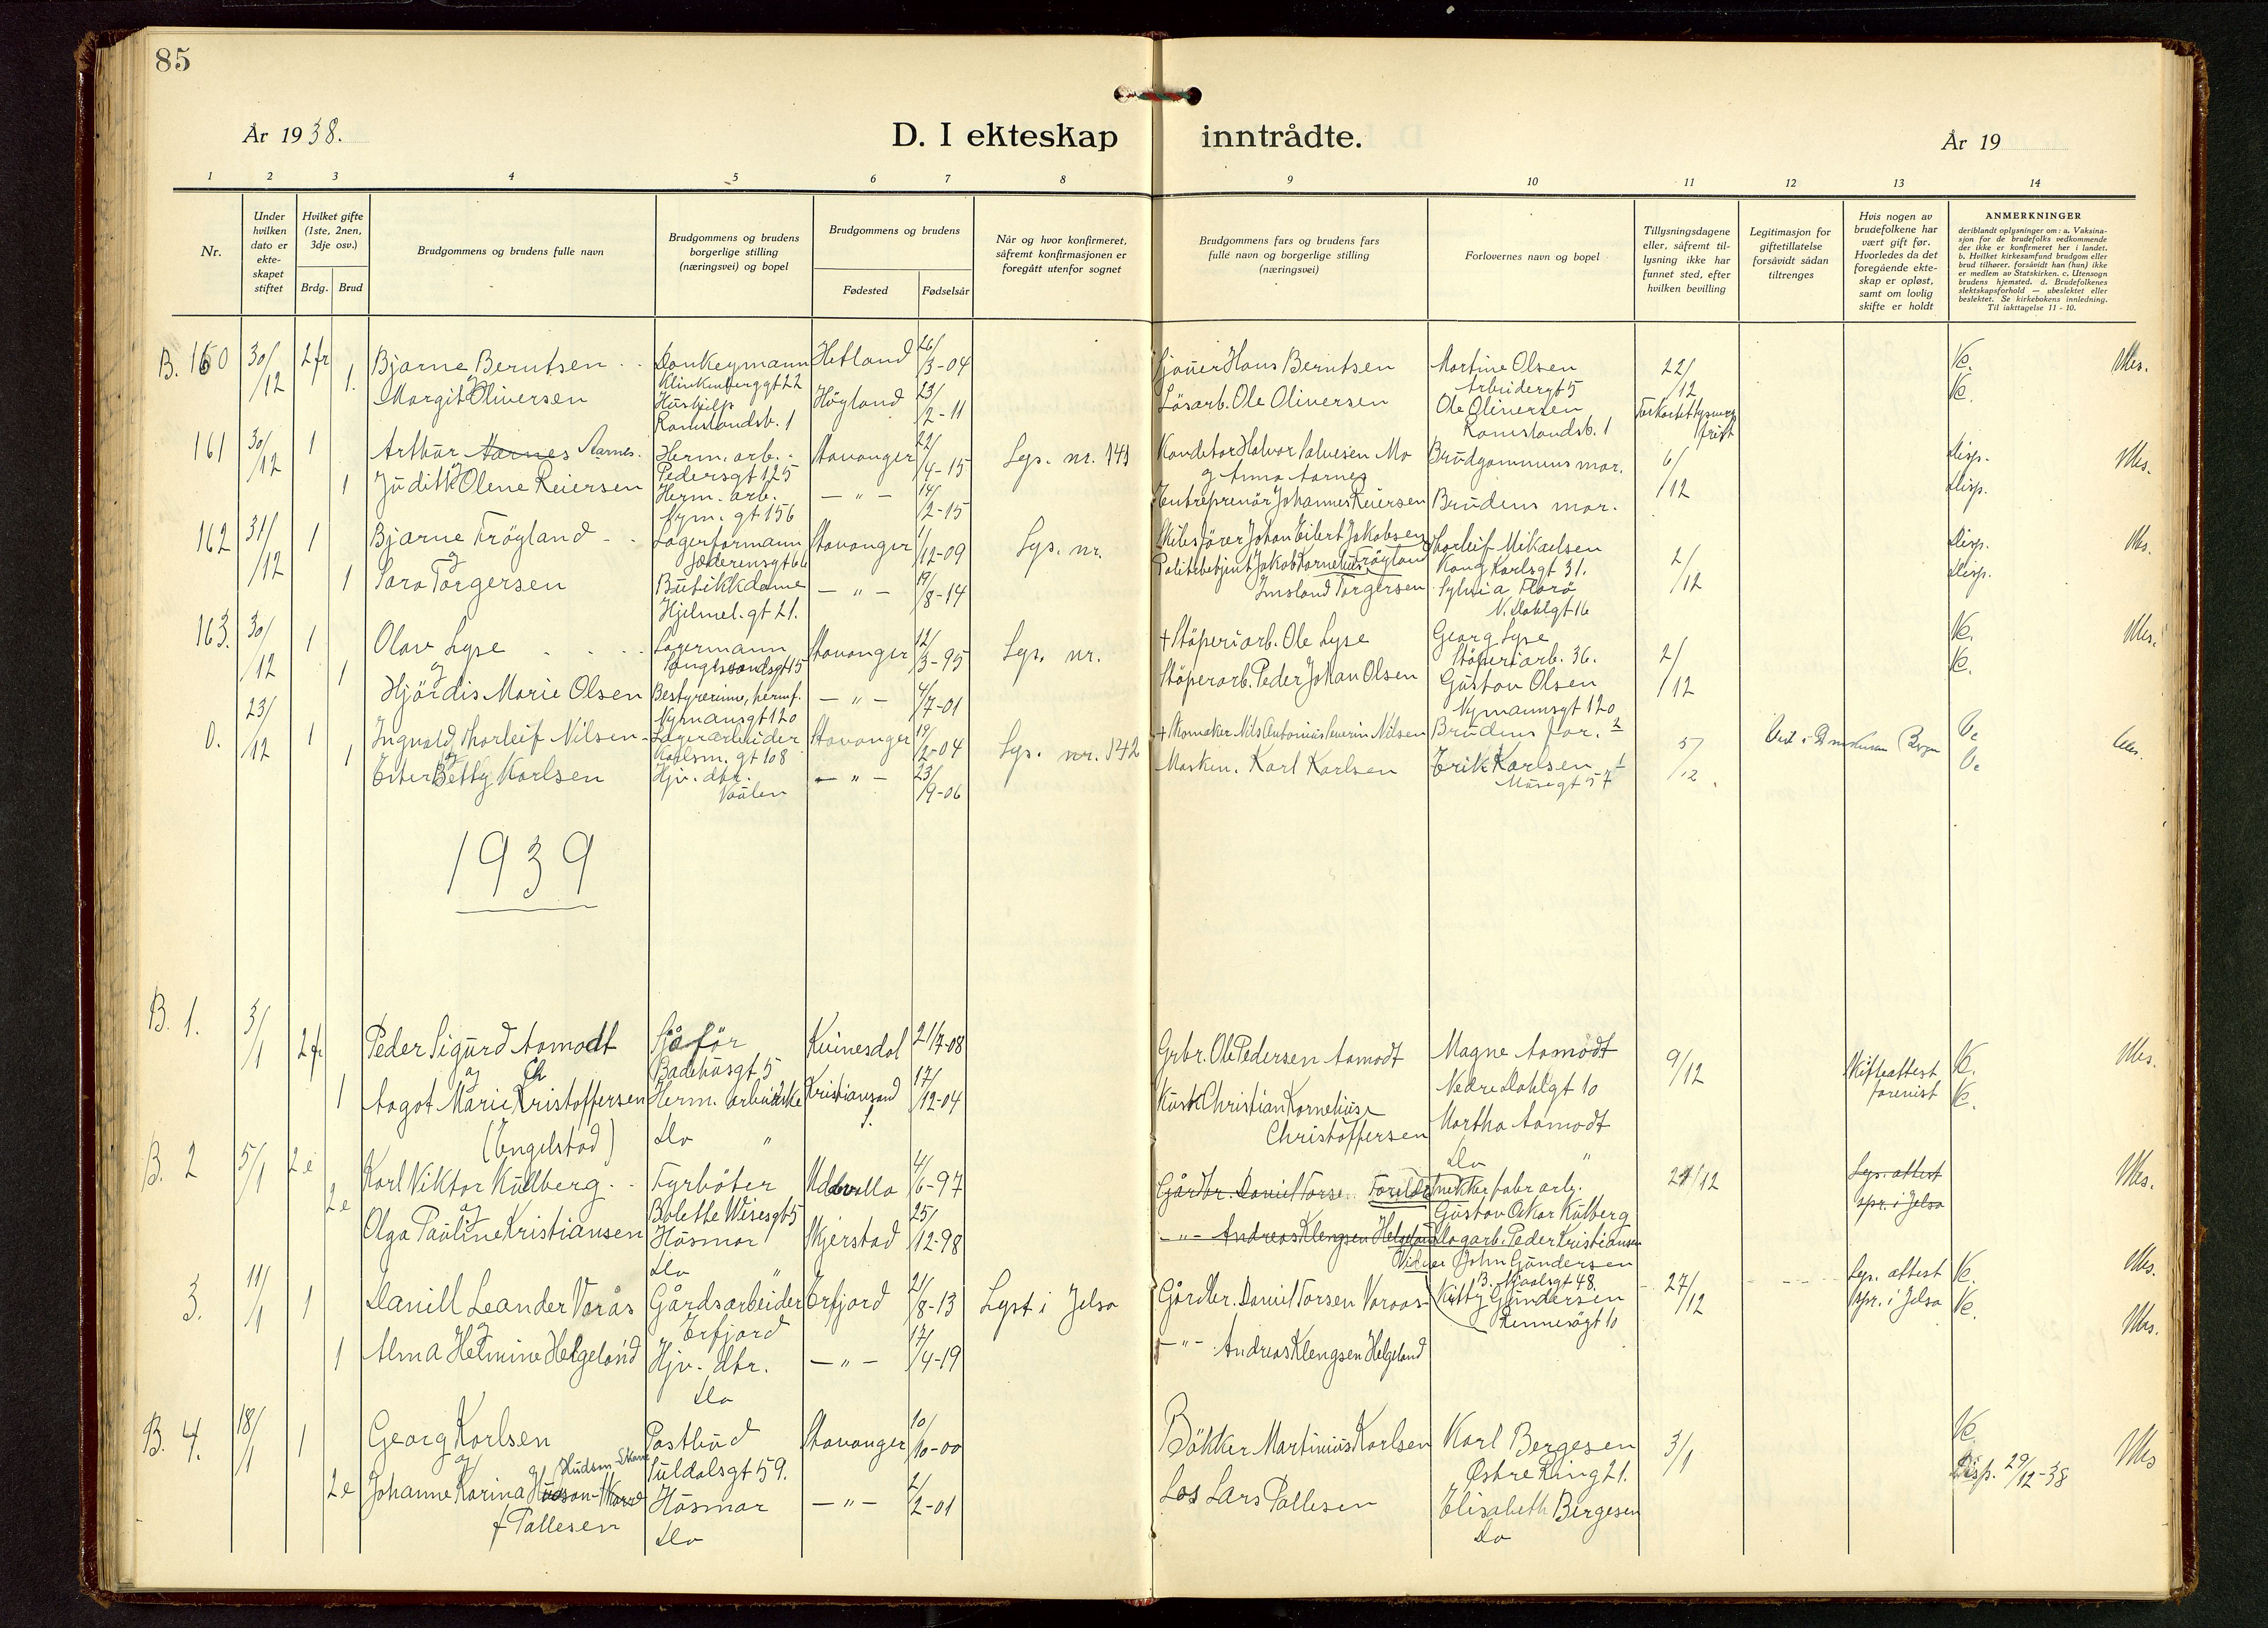 85
År 1938.
D. I ekteskap inntrådte.
År 19
1 2 3 4 5 6 7 8 9 10 11 12 13 14
Nr.
Under hvilken dato er ekte-skapet stiftet
Hvilket gifte (1ste, 2nen, 3dje osv.)
Brdg. Brud
Brudgommens og brudens fulle navn
Brudgommens og brudens borgerlige stilling (næringsvei) og bopel
Brudgommens og brudens
Fødested
Fødselsår
Når og hvor konfirmeret, såfremt konfirmasjonen er foregått utenfor sognet
Brudgommens fars og brudens fars fulle navn og borgerlige stilling (næringsvei)
Forlovernes navn og bopel
Tillysningsdagene eller, såfremt til-lysning ikke har funnet sted, efter hvilken bevilling
Legitimasjon for giftetillatelse forsåvidt sådan tiltrenges
Hvis nogen av brudefolkene har vært gift før. Hvorledes da det foregående ekte-skap er opløst, samt om lovlig skifte er holdt
ANMERKNINGER
deriblandt oplysninger om: a. Vaksina-sjon for de brudefolks vedkommende der ikke er konfirmeret her i landet. b. Hvilket kirkesamfund brudgom eller brud tilhører, forsåvidt han (hun) ikke er medlem av Statskirken. c. Utensogn brudens hjemsted. d. Brudefolkenes slektskapsforhold — ubeslektet eller beslektet. Se kirkebokens innledning. Til iakttagelse 11 - 10.
B. 160 30/12 2 fr Bjarne Berntsen Donkeymann Hetland 26/3-04 Hans Berntsen Martine Olsen 22/12
og Klinkenberggt 22 Arbeidergt 5
1. Margit Oliversen Hushjelp Høyland 23/2-11 Løsarb. Ole Oliversen Ole Oliversen
Ramslandsb. 1 Ramslandsb. 1
161 30/12 1 Arthur Aarnes Aarnes. Herm. arb. Stavanger 22/4-15 Lys. nr. 141 Konditor Halvor Salvesen Mo Brudgommens mor. 6/12 Disp.
og Pedersgt 125 og Anna Aarnes
1 Judith Olene Reiersen Herm. arb. — " — 14/2-15 Entreprenör Johannes Reiersen Brudens mor. Disp.
Nym. gt 156
162 31/12 1 Bjarne Fröyland Lagerformann Stavanger 1/12-09 Lys. nr. Johan Eilert Jakobsen Thorleif Mikaelsen 2/12 Disp.
og Jæderensgt 66 Politibetjent Jakob Kornelius Fröyland Kong Karlsgt 31.
1 Sara Torgersen Butikkdame — " — 19/8-14 Imsland Torgersen Sylvia Florø Disp.
Hjelmel. gt 21. N. Dahlgt 16
163. 30/12 1 Olav Lyse Lagermann Stavanger 12/3-95 Lys. nr. + Støperiarb. Ole Lyse Georg Lyse 2/12
og Støperiarb. 36.
1 Hjördis Marie Olsen Bestyrerinne, hermf. — " — 4/7-01 Støperarb. Peder Johan Olsen Gustav Olsen
Nymansgt 120 Nymannsgt 120
0. 23/12 1 Ingvald Thorleif Nilsen Lagerarbeider Stavanger 19/2-04 Lys. nr. 142 Nils Antonius Severin Nilsen Brudens far. 2 5/12.
og Karlsm. gt 108
1 Ester Betty Karlsen Hjv. dtr. — " — 23/9-06 Maskin. Karl Karlsen Erik Karlsen 1
Vaulen Musegt 57
1939
B. 1. 3/1 2 fr Peder Sigurd Aamodt Sjåför Kvinesdal 21/7-08 Grbr. Ole Pedersen Aamodt Magne Aamodt 9/12 Skifteattest
og Ch Badehusgt 5 Nedre Dahlgt 10 forevist
1 Aagot Marie Kristoffersen Herm. arbeiderske Kristiansand S. 17/12-04 Christian Kornelius Martha Aamodt
(Engelstad) Do " Christoffersen Do "
B. 2 5/1 2 e Karl Viktor Kullberg Fyrbøter Uddevalla 4/6-97 Gårdbr. Daniel Torse Foreldre fabr arb. 21/12 Lys. attest
og Bolette Wiesesgt 5 Gustav Oskar Kullberg spr. i Jelsa
2 e Olga Pauline Kristiansen Husmor Skjerstad 25/12-98 — " — Andreas Klengsen Helgeland Peder Kristiansen
Do " John Gundersen
3. 11/1 1 Daniell Leander Vorås Gårdsarbeider Erfjord 21/8-13 Lyst i Jelsa Gårdbr. Daniel Torsen Voraas Kitty Gundersen 27/12 Lys. attest
og Erfjord Rennesøgt 10 spr. i Jelsa
1 Alma Helmine Helgeland Hjv. dtr. — " — 17/4-19 — " — Andreas Klengsen Helgeland
Do
B. 4. 18/1 1 Georg Karlsen Postbud Stavanger 10/10-00 Bökker Martinius Karlsen Karl Bergesen 3/1
og Suldalsgt 59. Østre Ring 21.
2 e Johanne Karina Husmor — " — 2/2-01 Los Lars Pallesen Elisabeth Bergesen Disp. 29/12-38
f Pallesen Do Do